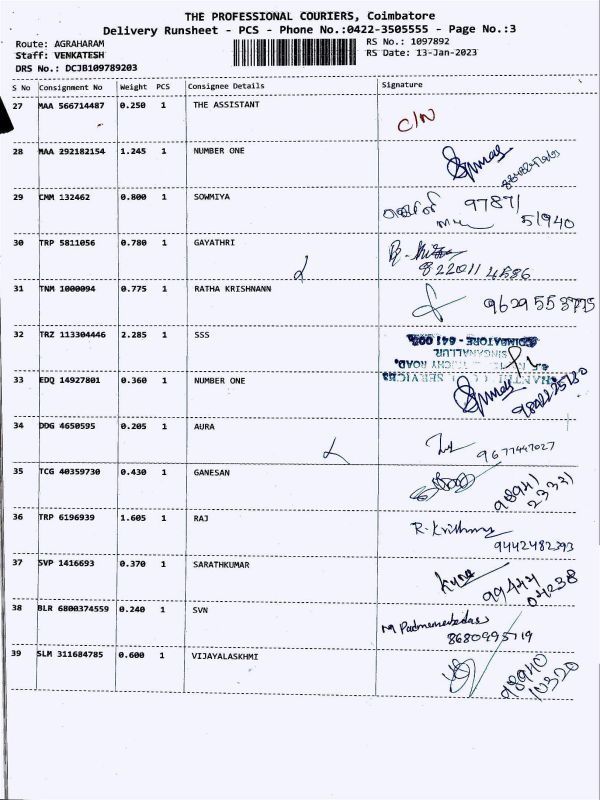 THE PROFESSIONAL COURIERS, Coimbatore
Delivery Runsheet - PCS - Phone No.:0422-3505555 - Page No.:3
Route: AGRAHARAM
RS No.: 1097892
Staff: VENKATESH
RS Date: 13-Jan-2023
DRS No.: DCJB109789203
S No Consignment No Weight PCS Consignee Details Signature
27 MAA 566714487 0.250 1 THE ASSISTANT C/N
28 MAA 292182154 1.245 1 NUMBER ONE
29 CMM 132462 0.800 1 SOWMIYA 97871
51940
30 TRP 5811056 0.780 1 GAYATHRI
82201 4586
31 TNM 1000094 0.775 1 RATHA KRISHNANN 9629558775
32 TRZ 113304446 2.285 1 SSS
COIMBATORE - 641 005.
SINGANALLUR
33 EDQ 14927801 0.360 1 NUMBER ONE
34 DDG 4650595 0.205 1 AURA
9677447027
35 TCG 40359730 0.430 1 GANESAN
98941
23331
36 TRP 6196939 1.605 1 RAJ R. Krithma
9442482393
37 SVP 1416693 0.370 1 SARATHKUMAR 99444
04238
38 BLR 6800374559 0.240 1 SVN
8680995719
39 SLM 311684785 0.600 1 VIJAYALASKHMI 98940
10320